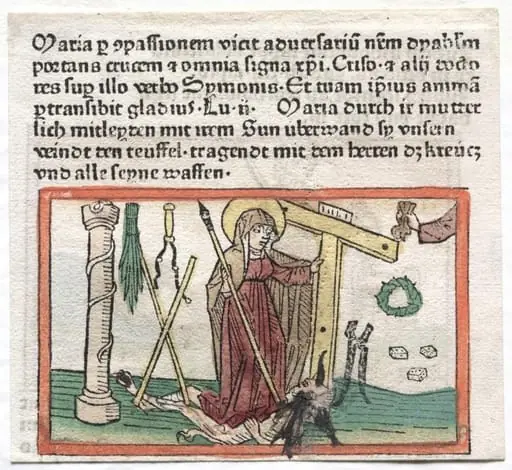 Maria ꝑ ꝯpassionem vicit aduersariū nr̄m dyablm̄
portans crucem ⁊ omnia signa xp̄i. Criso. ⁊ alij docto
res suꝑ illo verbo Symonis. Et tuam ip̄ius animā
ꝑtransibit gladius. Lu. ij. Maria durch ir mutter
lich mitleyden mit irem Sun uberwand sy vnsern
veindt den teuffel. tragendt mit dem herren dz kreucz
vnd alle seyne waffen.